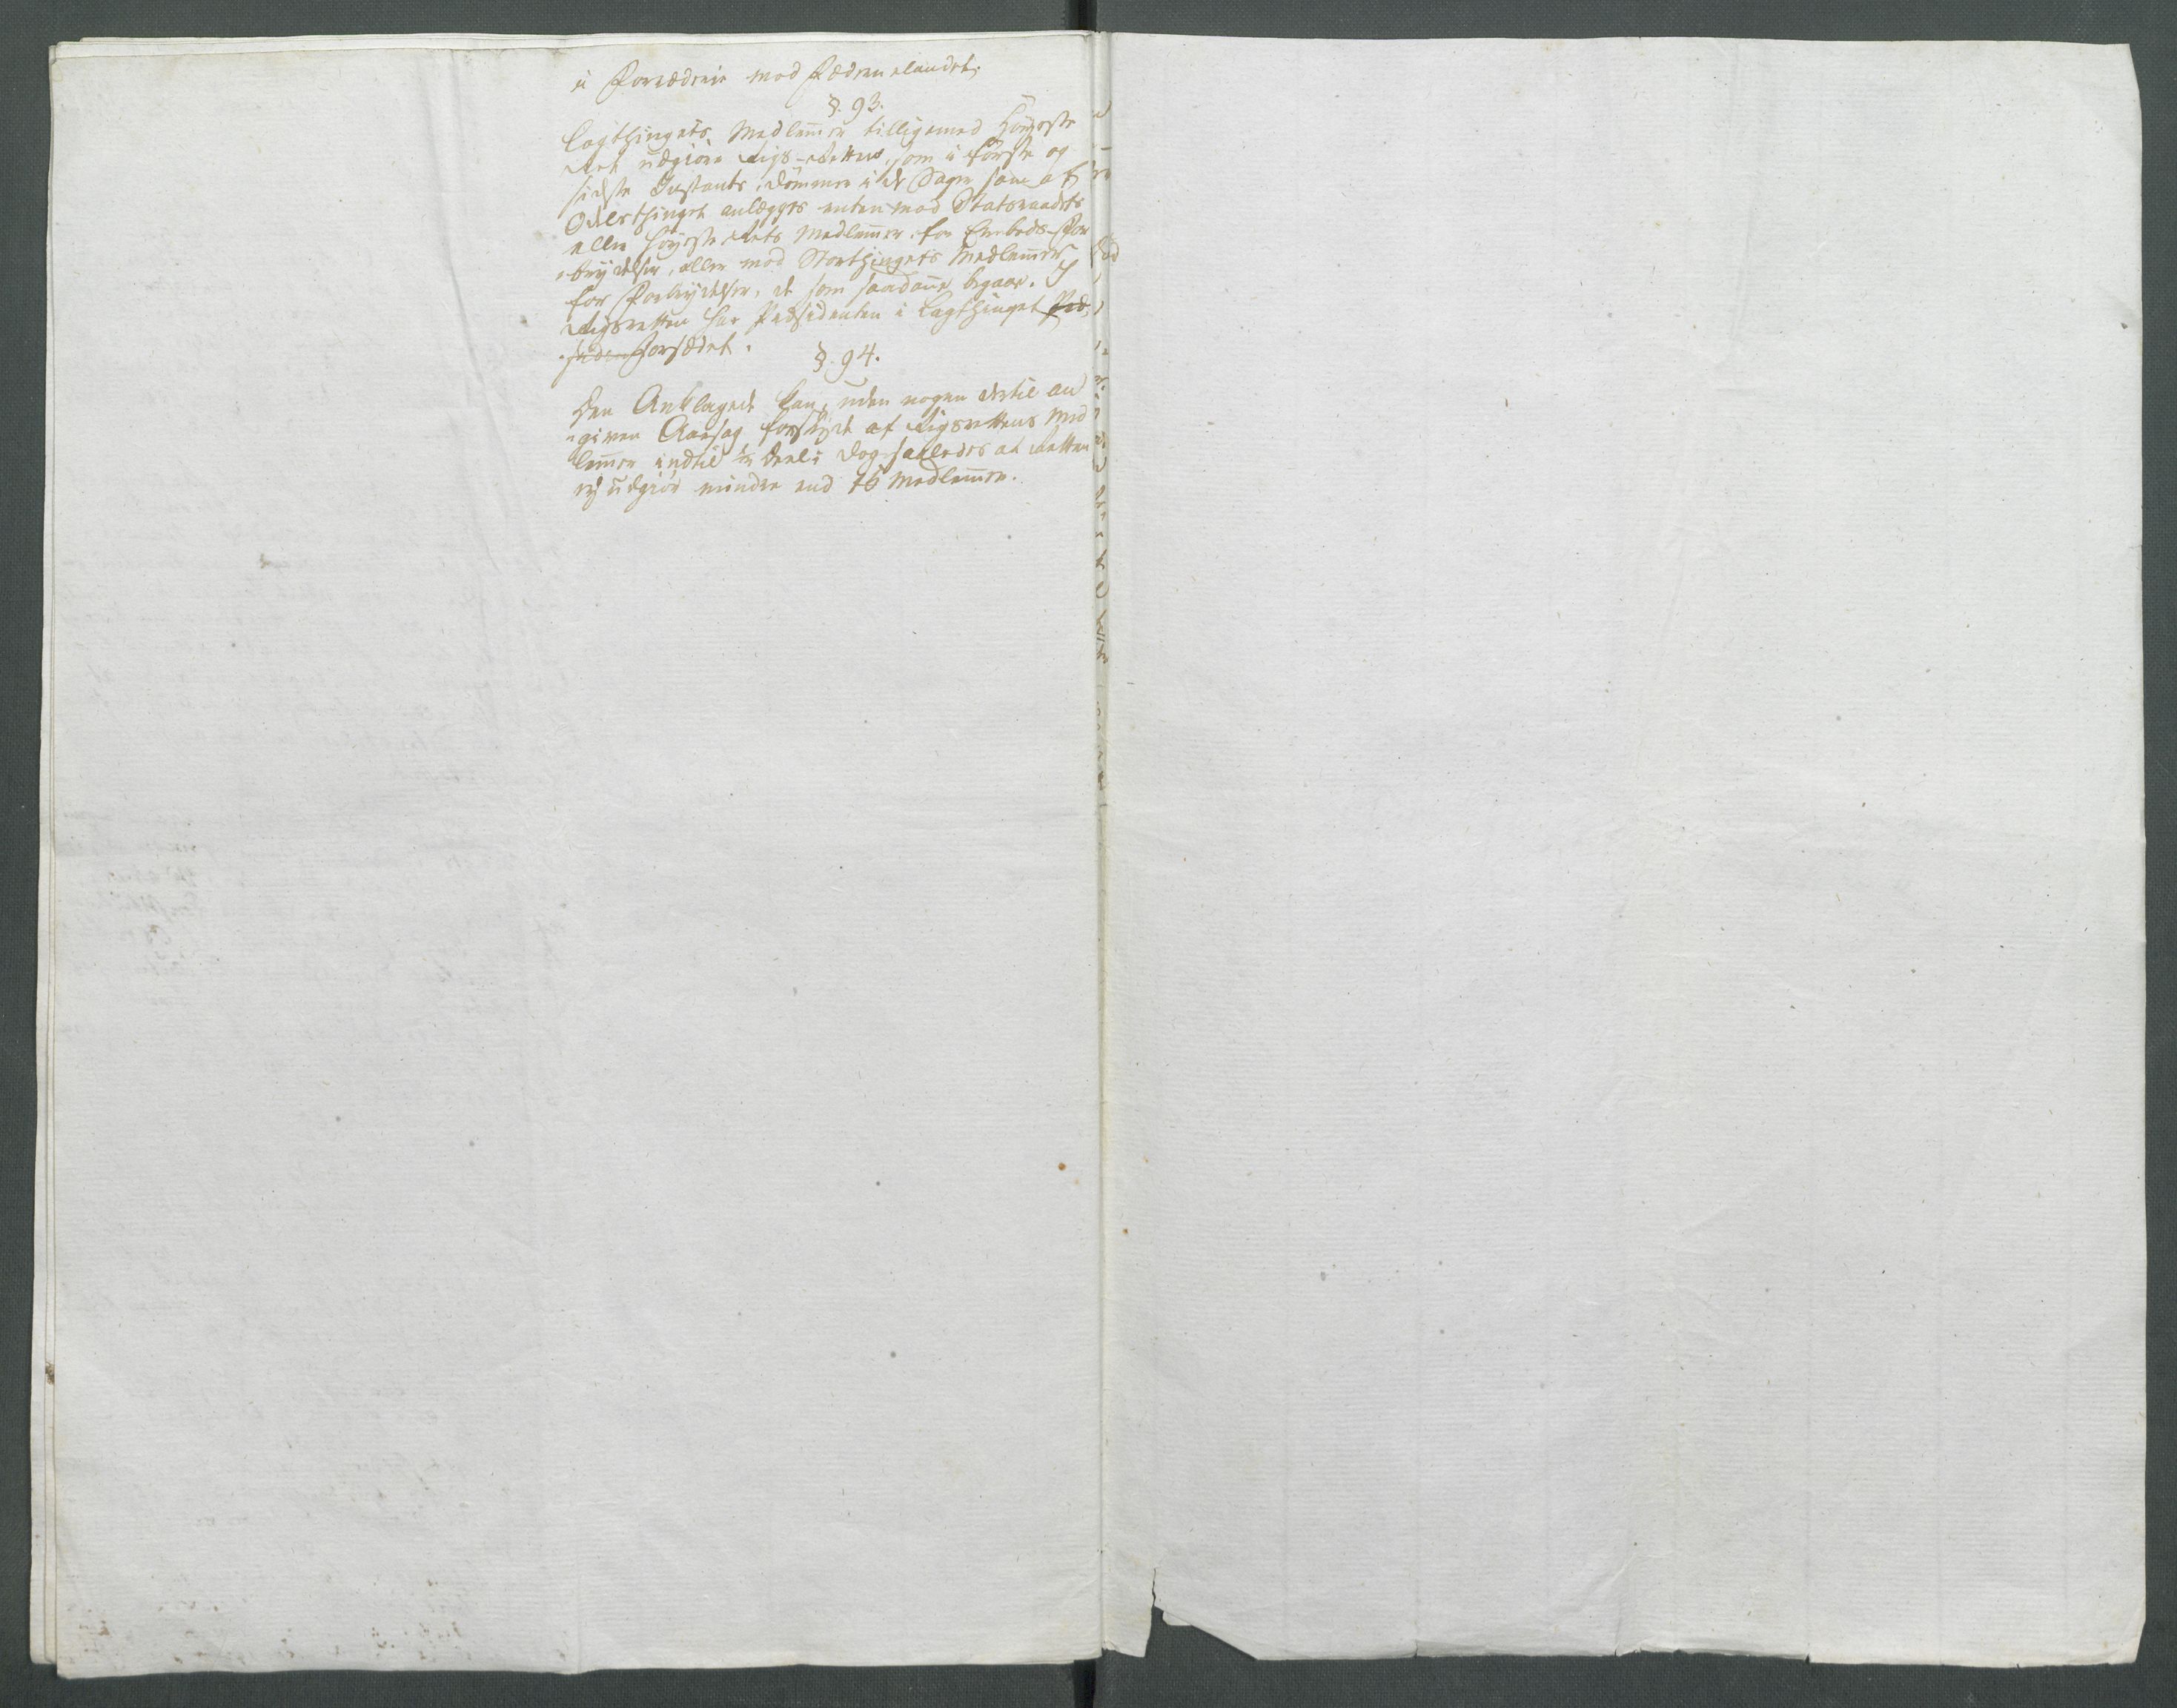 i Forræderie mod Fædrenelandet.
§. 93.
Lagthingets Medlem̅er tilligemed Høyeste
Ret udgiøre Rigs-Retten, som i første og
sidste Instants, dømmer i de Sager som af
Odelsthinget anlægges enten mod Statsraadets
eller Høyeste Rets Medlem̅er for Embeds-For
-brydelser, eller mod Storthingets Medlem̅er
for Forbrydelser, de som saadanne begaae. I
Rigsretten har Præsidenten i Lagthinget Præ-
siden Forsædet.
§. 94.
Den Anklagede kan, uden nogen dertil an
-given Aarsag forskyde af Rigsrettens Med
lem̅er indtil Deel; dog saaledes at Retten
ej udgiør mindre end 16 Medlem̅er.